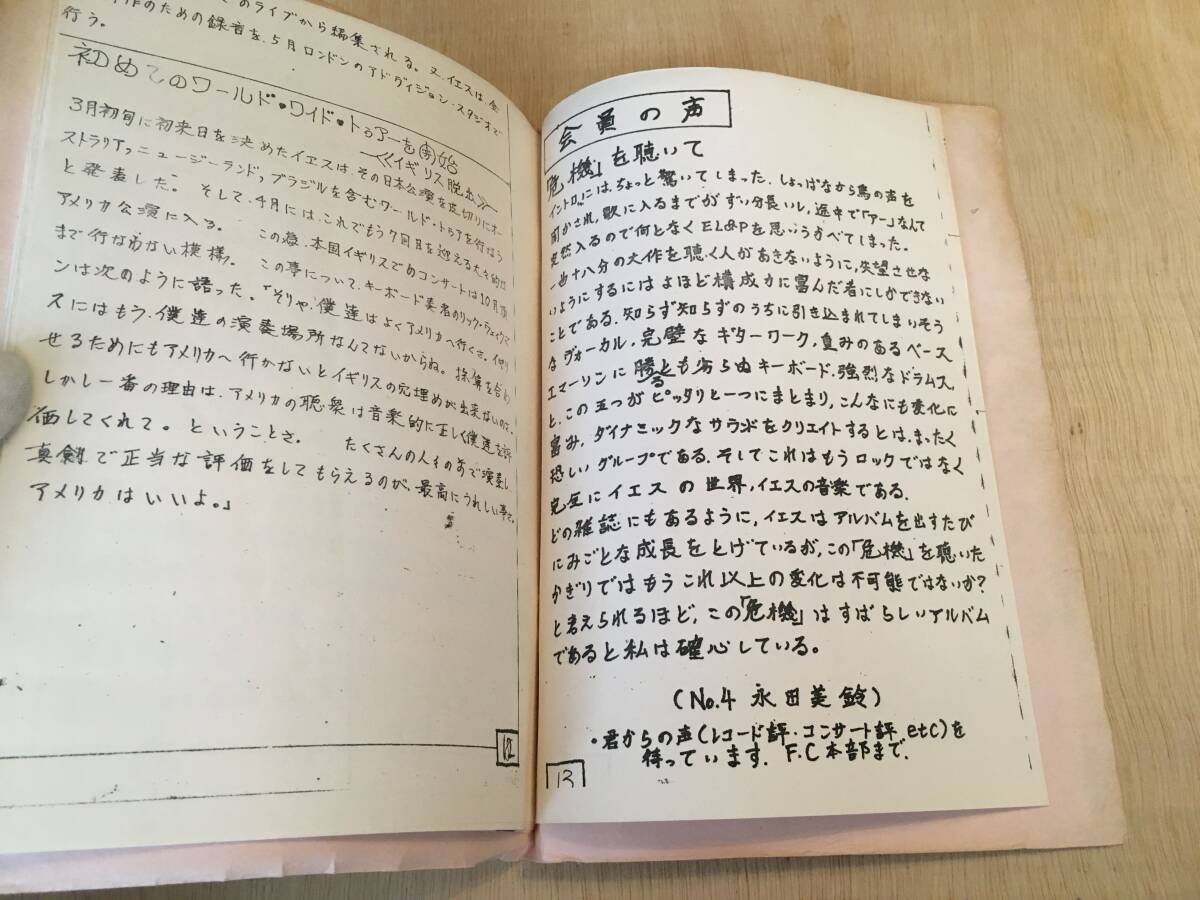 のライブから編集される。又、イエスは、
作のための録音を、5月ロンドンのアドヴィジョン・スタジオで
行う。
初めてのワールド・ワイド・トゥアーを開始
≪イギリス脱出≫
3月初旬に初来日を決めたイエスは、その日本公演を皮切りにオー
ストラリア、ニュージーランド、ブラジルを含むワールド・トゥアを行なう
と発表した。そして、4月には、これでもう7回目を迎える大々的に
アメリカ公演に入る。この為、本国イギリスでのコンサートは10月頃
まで行なわない模様。この事について、キーボード奏者のリック・ウェイクマ
ンは次のように語った。「そりゃ、僕達はよくアメリカへ行くさ。イギリ
スにはもう、僕達の演奏場所なんてないからね。採算を合わ
せるためにもアメリカへ行かないとイギリスの穴埋めが出来ないのさ。
しかし一番の理由は、アメリカの聴衆は音楽的に正しく僕達を評
価してくれて。ということさ。たくさんの人々の前で演奏し
真剣で正当な評価をしてもらえるのが、最高にうれしい事さ。
アメリカはいいよ。」
12
会員の声
「危機」を聴いて
イントロには、ちょっと驚いてしまった。しょっぱなから鳥の声を
聞かされ、歌に入るまでがずい分長いし、途中で「アー」なんて
突然入るので何となくEL&Pを思いうかべてしまった。
一曲十八分の大作を聴く人があきないように、失望させな
いようにするにはよほど構成力に富んだ者にしかできない
ことである。知らず知らずのうちに引き込まれてしまいそう
なヴォーカル、完璧なギターワーク、重みのあるベース
エマーソンに勝るとも劣らぬキーボード、強烈なドラムス、
と、この五つがピッタリと一つにまとまり、こんなにも変化に
富み、ダイナミックなサウンドをクリエイトするとは、まったく
恐しいグループである。そしてこれはもうロックではなく
完全にイエスの世界、イエスの音楽である。
どの雑誌にもあるように、イエスはアルバムを出すたび
にみごとな成長をとげているが、この「危機」を聴いた
かぎりではもうこれ以上の変化は不可能ではないか?
と考えられるほど、この「危機」はすばらしいアルバム
であると私は確心している。
(No.4 永田美鈴)
・君からの声(レコード評・コンサート評 etc)を
待っています。F.C本部まで.
13